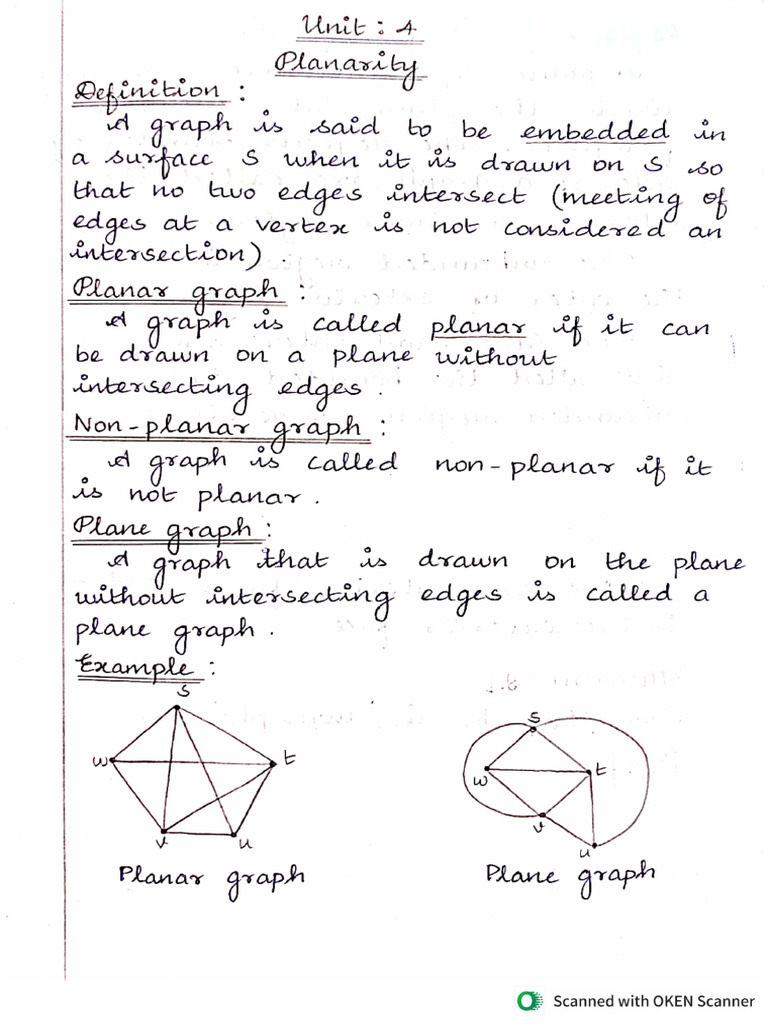 Unit : 4
Planarity
Definition :
A graph is said to be embedded in
a surface S when it is drawn on S so
that no two edges intersect (meeting of
edges at a vertex is not considered an
intersection) .
Planar graph :
A graph is called planar if it can
be drawn on a plane without
intersecting edges .
Non-planar graph :
A graph is called non-planar if it
is not planar .
Plane graph :
A graph that is drawn on the plane
without intersecting edges is called a
plane graph .
Example :
s
w
t
v
u
Planar graph
s
w
t
v
u
Plane graph
Scanned with OKEN Scanner